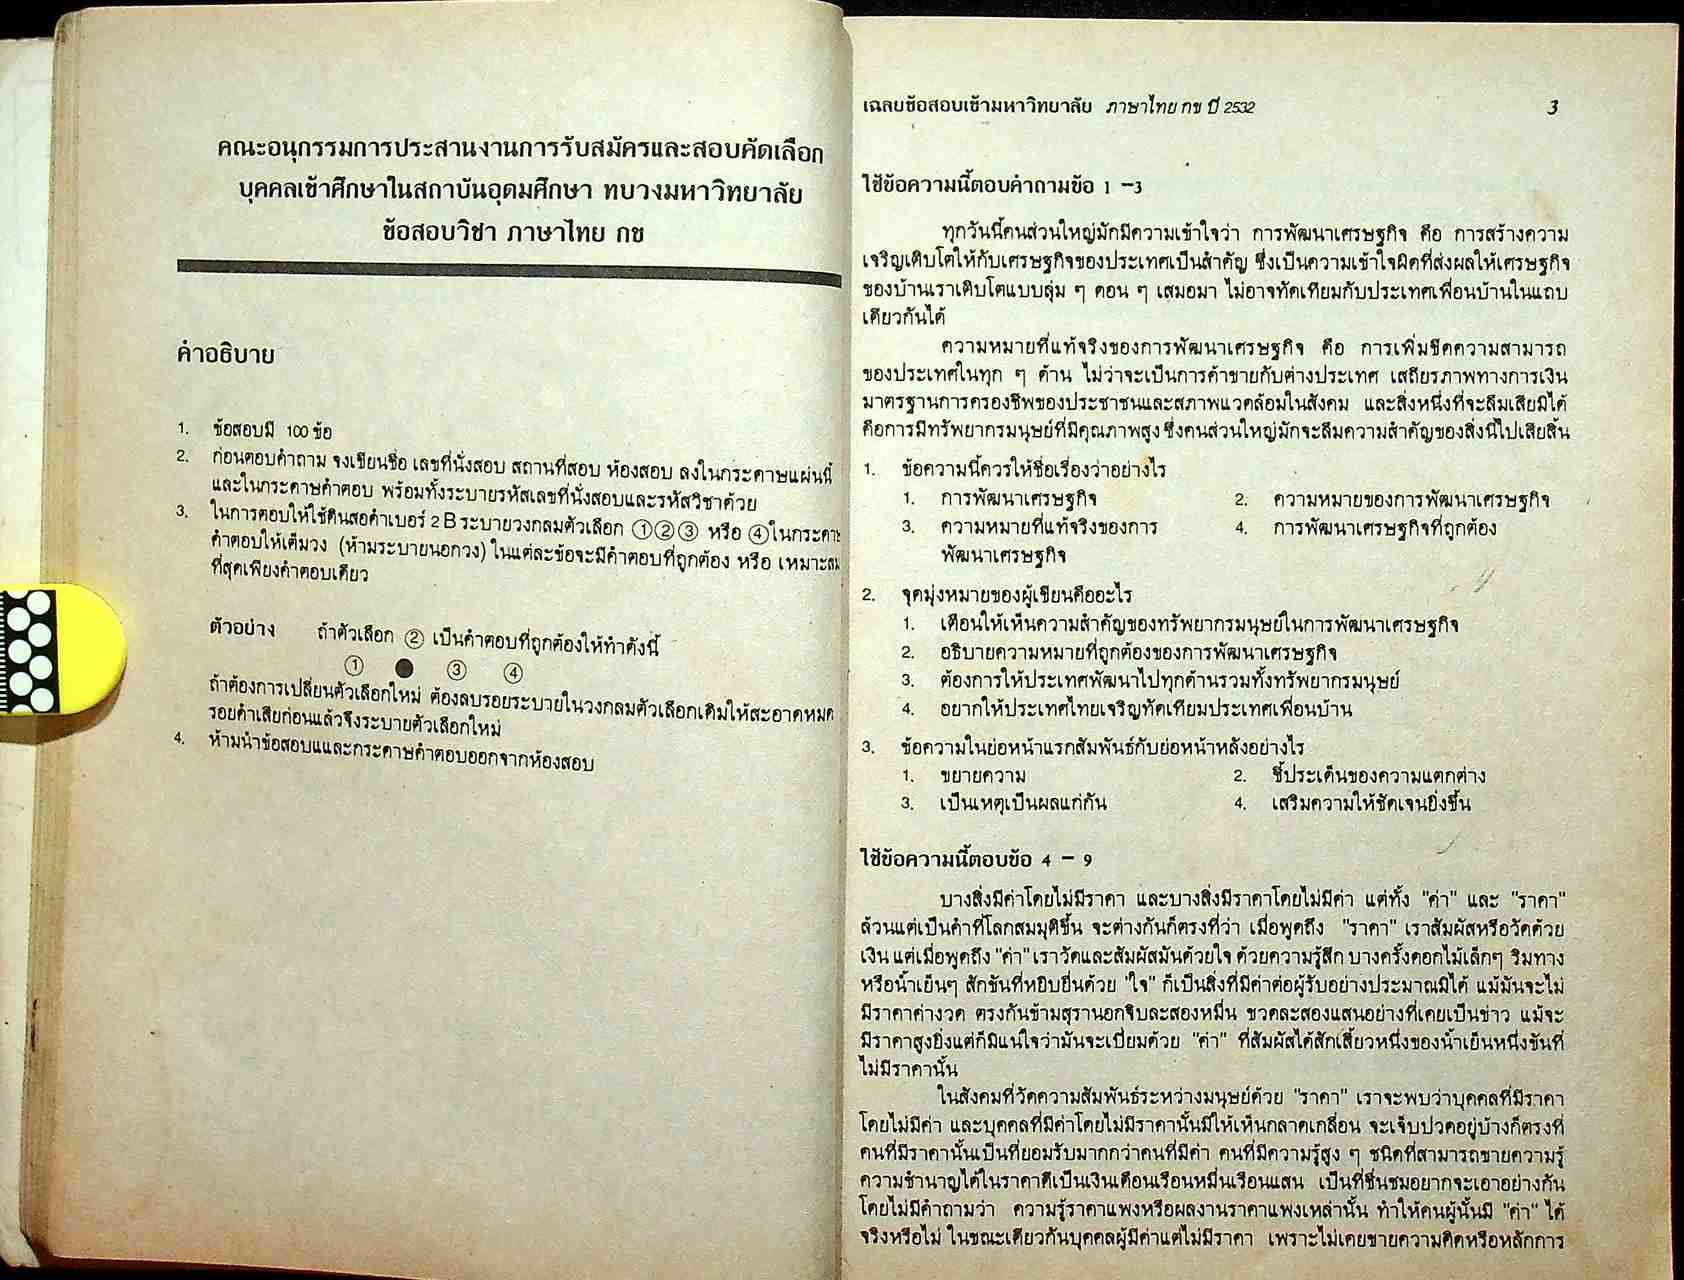 คณะอนุกรรมการประสานงานการรับสมัครและสอบคัดเลือก
บุคคลเข้าศึกษาในสถาบันอุดมศึกษา ทบวงมหาวิทยาลัย
ข้อสอบวิชา ภาษาไทย กข
คำอธิบาย
1. ข้อสอบมี 100 ข้อ
2. ก่อนตอบคำถาม จงเขียนชื่อ เลขที่นั่งสอบ สถานที่สอบ ห้องสอบ ลงในกระดาษแผ่นนี้
และในกระดาษคำตอบ พร้อมทั้งระบายรหัสเลขที่นั่งสอบและรหัสวิชาด้วย
3. ในการตอบให้ใช้ดินสอดำเบอร์ 2 B ระบายวงกลมตัวเลือก ①②③ หรือ ④ในกระดา
คำตอบให้เต็มวง (ห้ามระบายนอกวง) ในแต่ละข้อจะมีคำตอบที่ถูกต้อง หรือ เหมาะสม
ที่สุดเพียงคำตอบเดียว
ตัวอย่าง ถ้าตัวเลือก ② เป็นคำตอบที่ถูกต้องให้ทำดังนี้
① ● ③ ④
ถ้าต้องการเปลี่ยนตัวเลือกใหม่ ต้องลบรอยระบายในวงกลมตัวเลือกเดิมให้สะอาดหมด
รอยดำเสียก่อนแล้วจึงระบายตัวเลือกใหม่
4. ห้ามนำข้อสอบแและกระดาษคำตอบออกจากห้องสอบ
เฉลยข้อสอบเข้ามหาวิทยาลัย ภาษาไทย กข ปี 2532 3
ใช้ข้อความนี้ตอบคำถามข้อ 1 –3
ทุกวันนี้คนส่วนใหญ่มักมีความเข้าใจว่า การพัฒนาเศรษฐกิจ คือ การสร้างความ
เจริญเติบโตให้กับเศรษฐกิจของประเทศเป็นสำคัญ ซึ่งเป็นความเข้าใจผิดที่ส่งผลให้เศรษฐกิจ
ของบ้านเราเติบโตแบบลุ่ม ๆ ดอน ๆ เสมอมา ไม่อาจทัดเทียมกับประเทศเพื่อนบ้านในแถบ
เดียวกันได้
ความหมายที่แท้จริงของการพัฒนาเศรษฐกิจ คือ การเพิ่มขีดความสามารถ
ของประเทศในทุก ๆ ด้าน ไม่ว่าจะเป็นการค้าขายกับต่างประเทศ เสถียรภาพทางการเงิน
มาตรฐานการครองชีพของประชาชนและสภาพแวดล้อมในสังคม และสิ่งหนึ่งที่จะลืมเสียมิได้
คือการมีทรัพยากรมนุษย์ที่มีคุณภาพสูง ซึ่งคนส่วนใหญ่มักจะลืมความสำคัญของสิ่งนี้ไปเสียสิ้น
1. ข้อความนี้ควรให้ชื่อเรื่องว่าอย่างไร
1. การพัฒนาเศรษฐกิจ 2. ความหมายของการพัฒนาเศรษฐกิจ
3. ความหมายที่แท้จริงของการ 4. การพัฒนาเศรษฐกิจที่ถูกต้อง
พัฒนาเศรษฐกิจ
2. จุดมุ่งหมายของผู้เขียนคืออะไร
1. เตือนให้เห็นความสำคัญของทรัพยากรมนุษย์ในการพัฒนาเศรษฐกิจ
2. อธิบายความหมายที่ถูกต้องของการพัฒนาเศรษฐกิจ
3. ต้องการให้ประเทศพัฒนาไปทุกด้านรวมทั้งทรัพยากรมนุษย์
4. อยากให้ประเทศไทยเจริญทัดเทียมประเทศเพื่อนบ้าน
3. ข้อความในย่อหน้าแรกสัมพันธ์กับย่อหน้าหลังอย่างไร
1. ขยายความ 2. ชี้ประเด็นของความแตกต่าง
3. เป็นเหตุเป็นผลแก่กัน 4. เสริมความให้ชัดเจนยิ่งขึ้น
ใช้ข้อความนี้ตอบข้อ 4 – 9
บางสิ่งมีค่าโดยไม่มีราคา และบางสิ่งมีราคาโดยไม่มีค่า แต่ทั้ง "ค่า" และ "ราคา"
ล้วนแต่เป็นคำที่โลกสมมุติขึ้น จะต่างกันก็ตรงที่ว่า เมื่อพูดถึง "ราคา" เราสัมผัสหรือวัดด้วย
เงิน แต่เมื่อพูดถึง "ค่า" เราวัดและสัมผัสมันด้วยใจ ด้วยความรู้สึก บางครั้งดอกไม้เล็กๆ ริมทาง
หรือน้ำเย็นๆ สักขันที่หยิบยื่นด้วย "ใจ" ก็เป็นสิ่งที่มีค่าต่อผู้รับอย่างประมาณมิได้ แม้มันจะไม่
มีราคาค่างวด ตรงกันข้ามสุรานอกจิบละสองหมื่น ขวดละสองแสนอย่างที่เคยเป็นข่าว แม้จะ
มีราคาสูงยิ่งแต่ก็มิแน่ใจว่ามันจะเปี่ยมด้วย "ค่า" ที่สัมผัสได้สักเสี้ยวหนึ่งของน้ำเย็นหนึ่งขันที่
ไม่มีราคานั้น
ในสังคมที่วัดความสัมพันธ์ระหว่างมนุษย์ด้วย "ราคา" เราจะพบว่าบุคคลที่มีราคา
โดยไม่มีค่า และบุคคลที่มีค่าโดยไม่มีราคานั้นมีให้เห็นกลาดเกลื่อน จะเจ็บปวดอยู่บ้างก็ตรงที่
คนที่มีราคานั้นเป็นที่ยอมรับมากกว่าคนที่มีค่า คนที่มีความรู้สูง ๆ ชนิดที่สามารถขายความรู้
ความชำนาญได้ในราคาดีเป็นเงินเดือนเรือนหมื่นเรือนแสน เป็นที่ชื่นชมอยากจะเอาอย่างกัน
โดยไม่มีคำถามว่า ความรู้ราคาแพงหรือผลงานราคาแพงเหล่านั้น ทำให้คนผู้นั้นมี "ค่า" ได้
จริงหรือไม่ ในขณะเดียวกันบุคคลผู้มีค่าแต่ไม่มีราคา เพราะไม่เคยขายความคิดหรือหลักการ